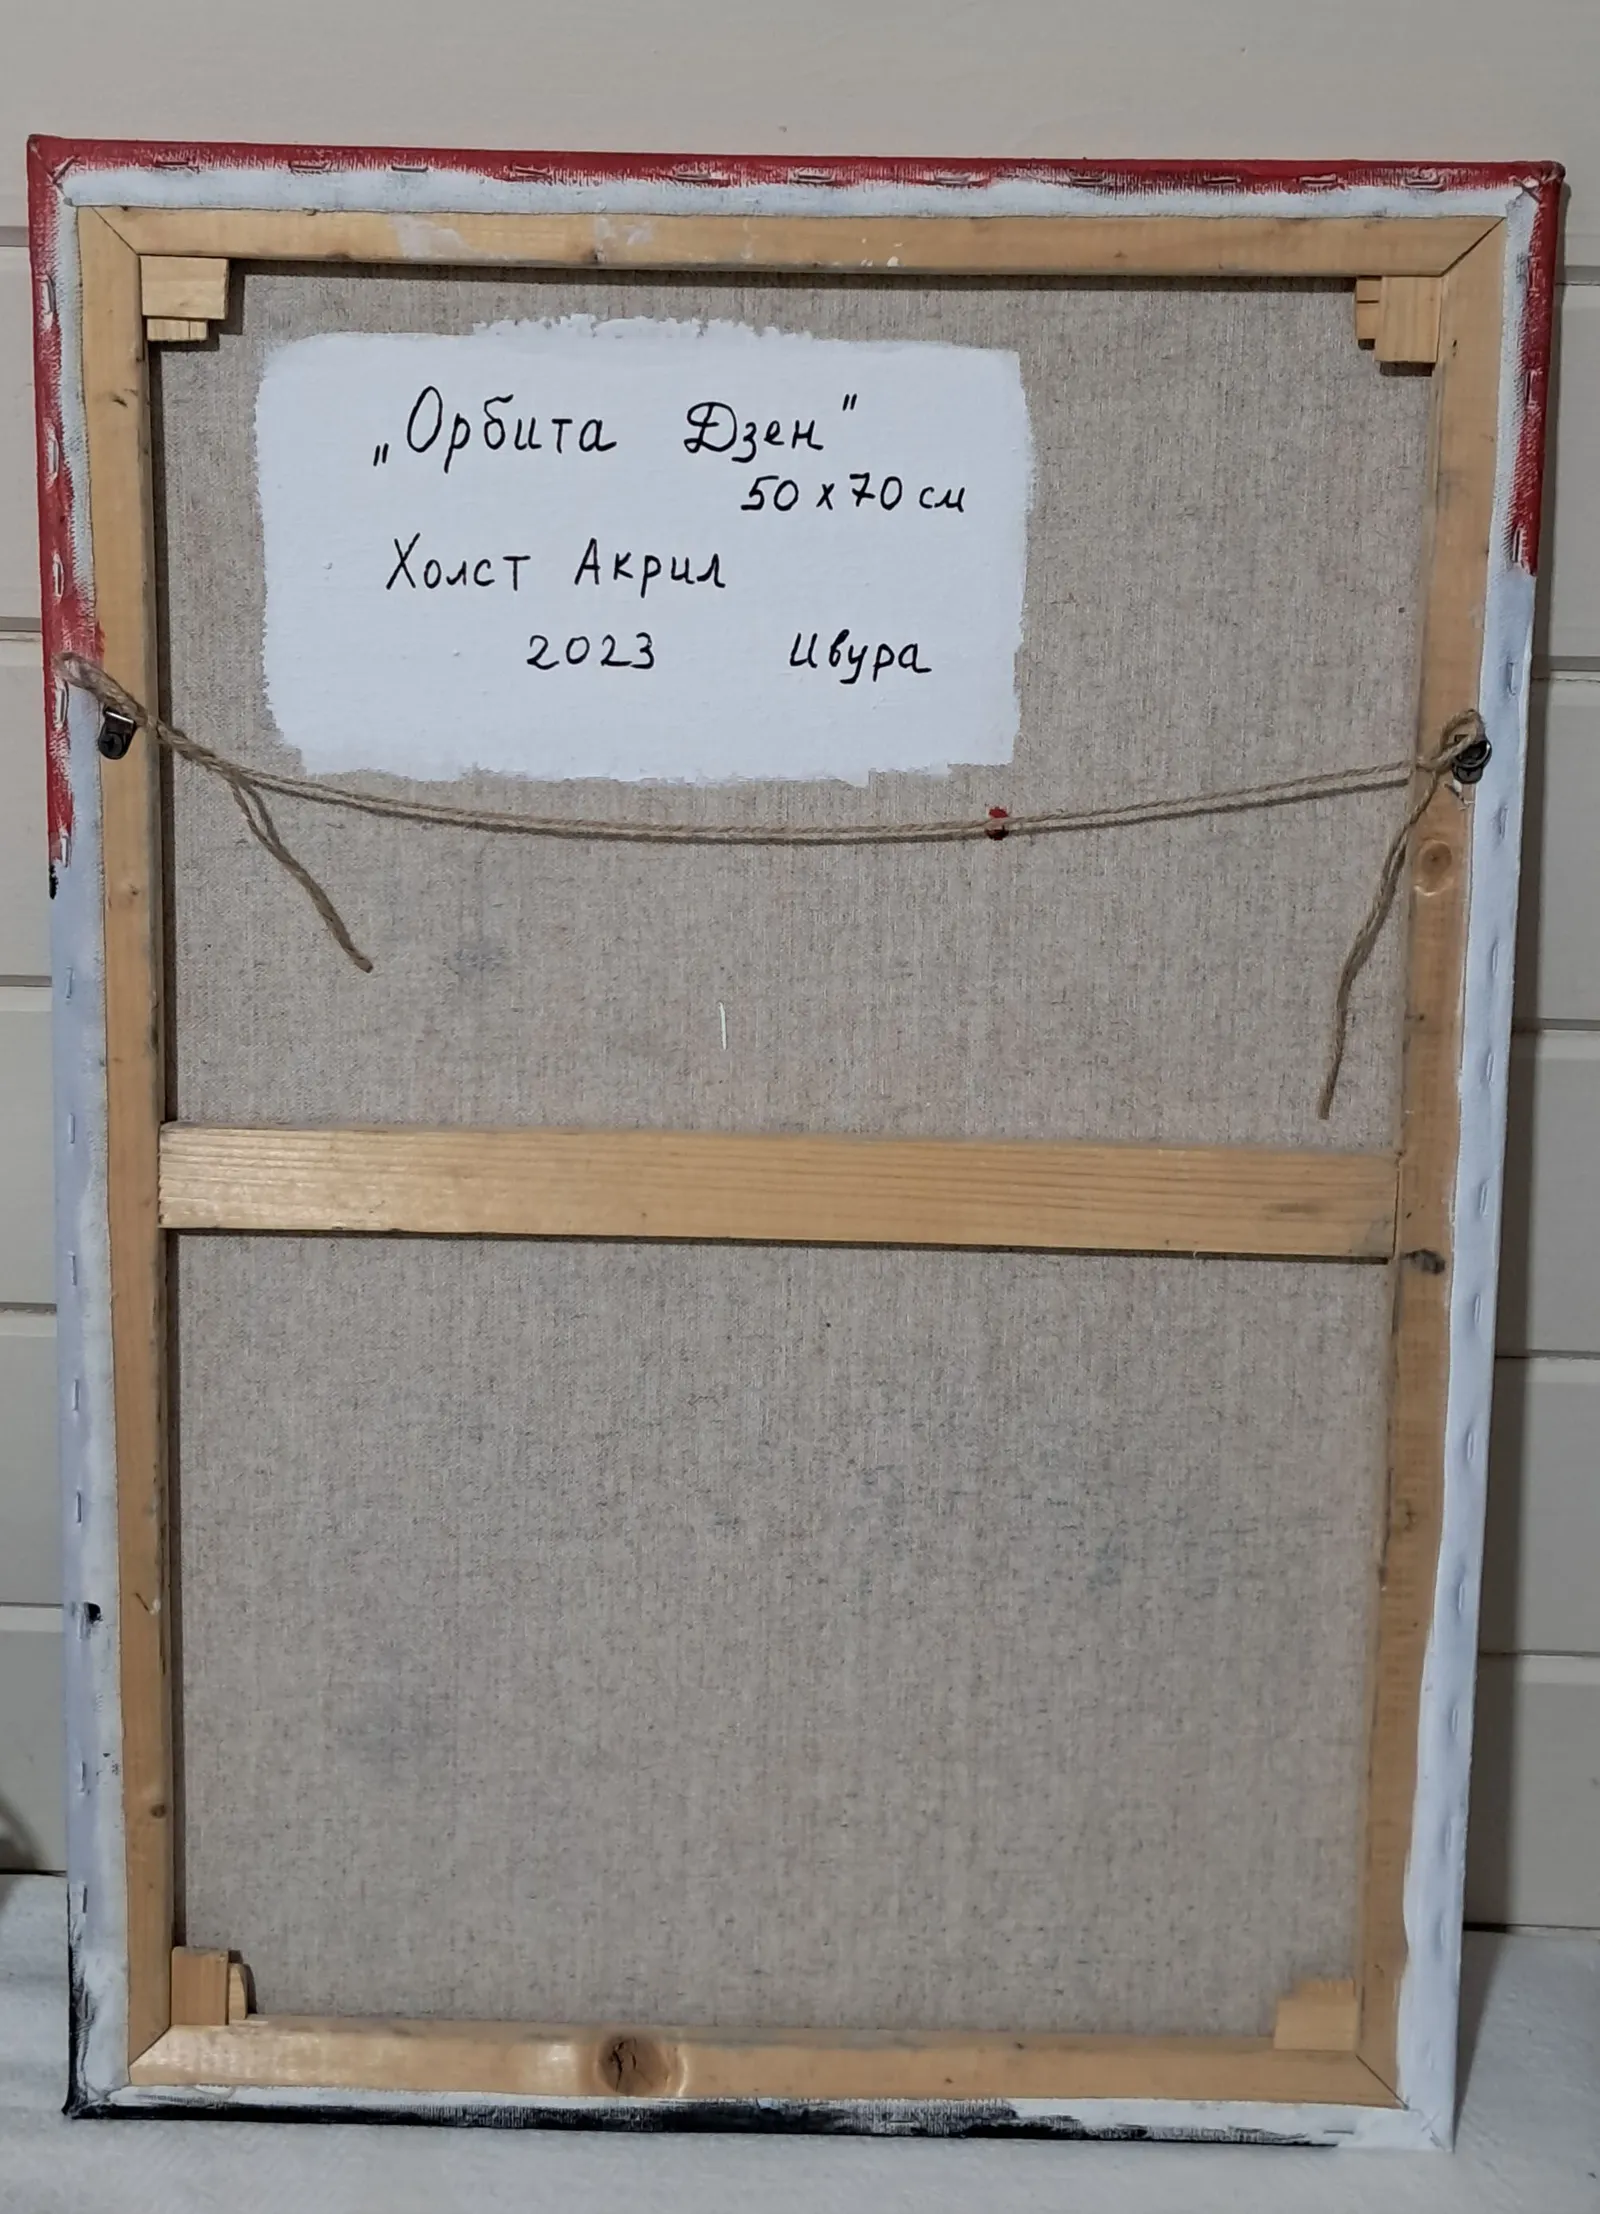 „Орбита Дзен"
50 х 70 см
Холст Акрил
2023 Ивура